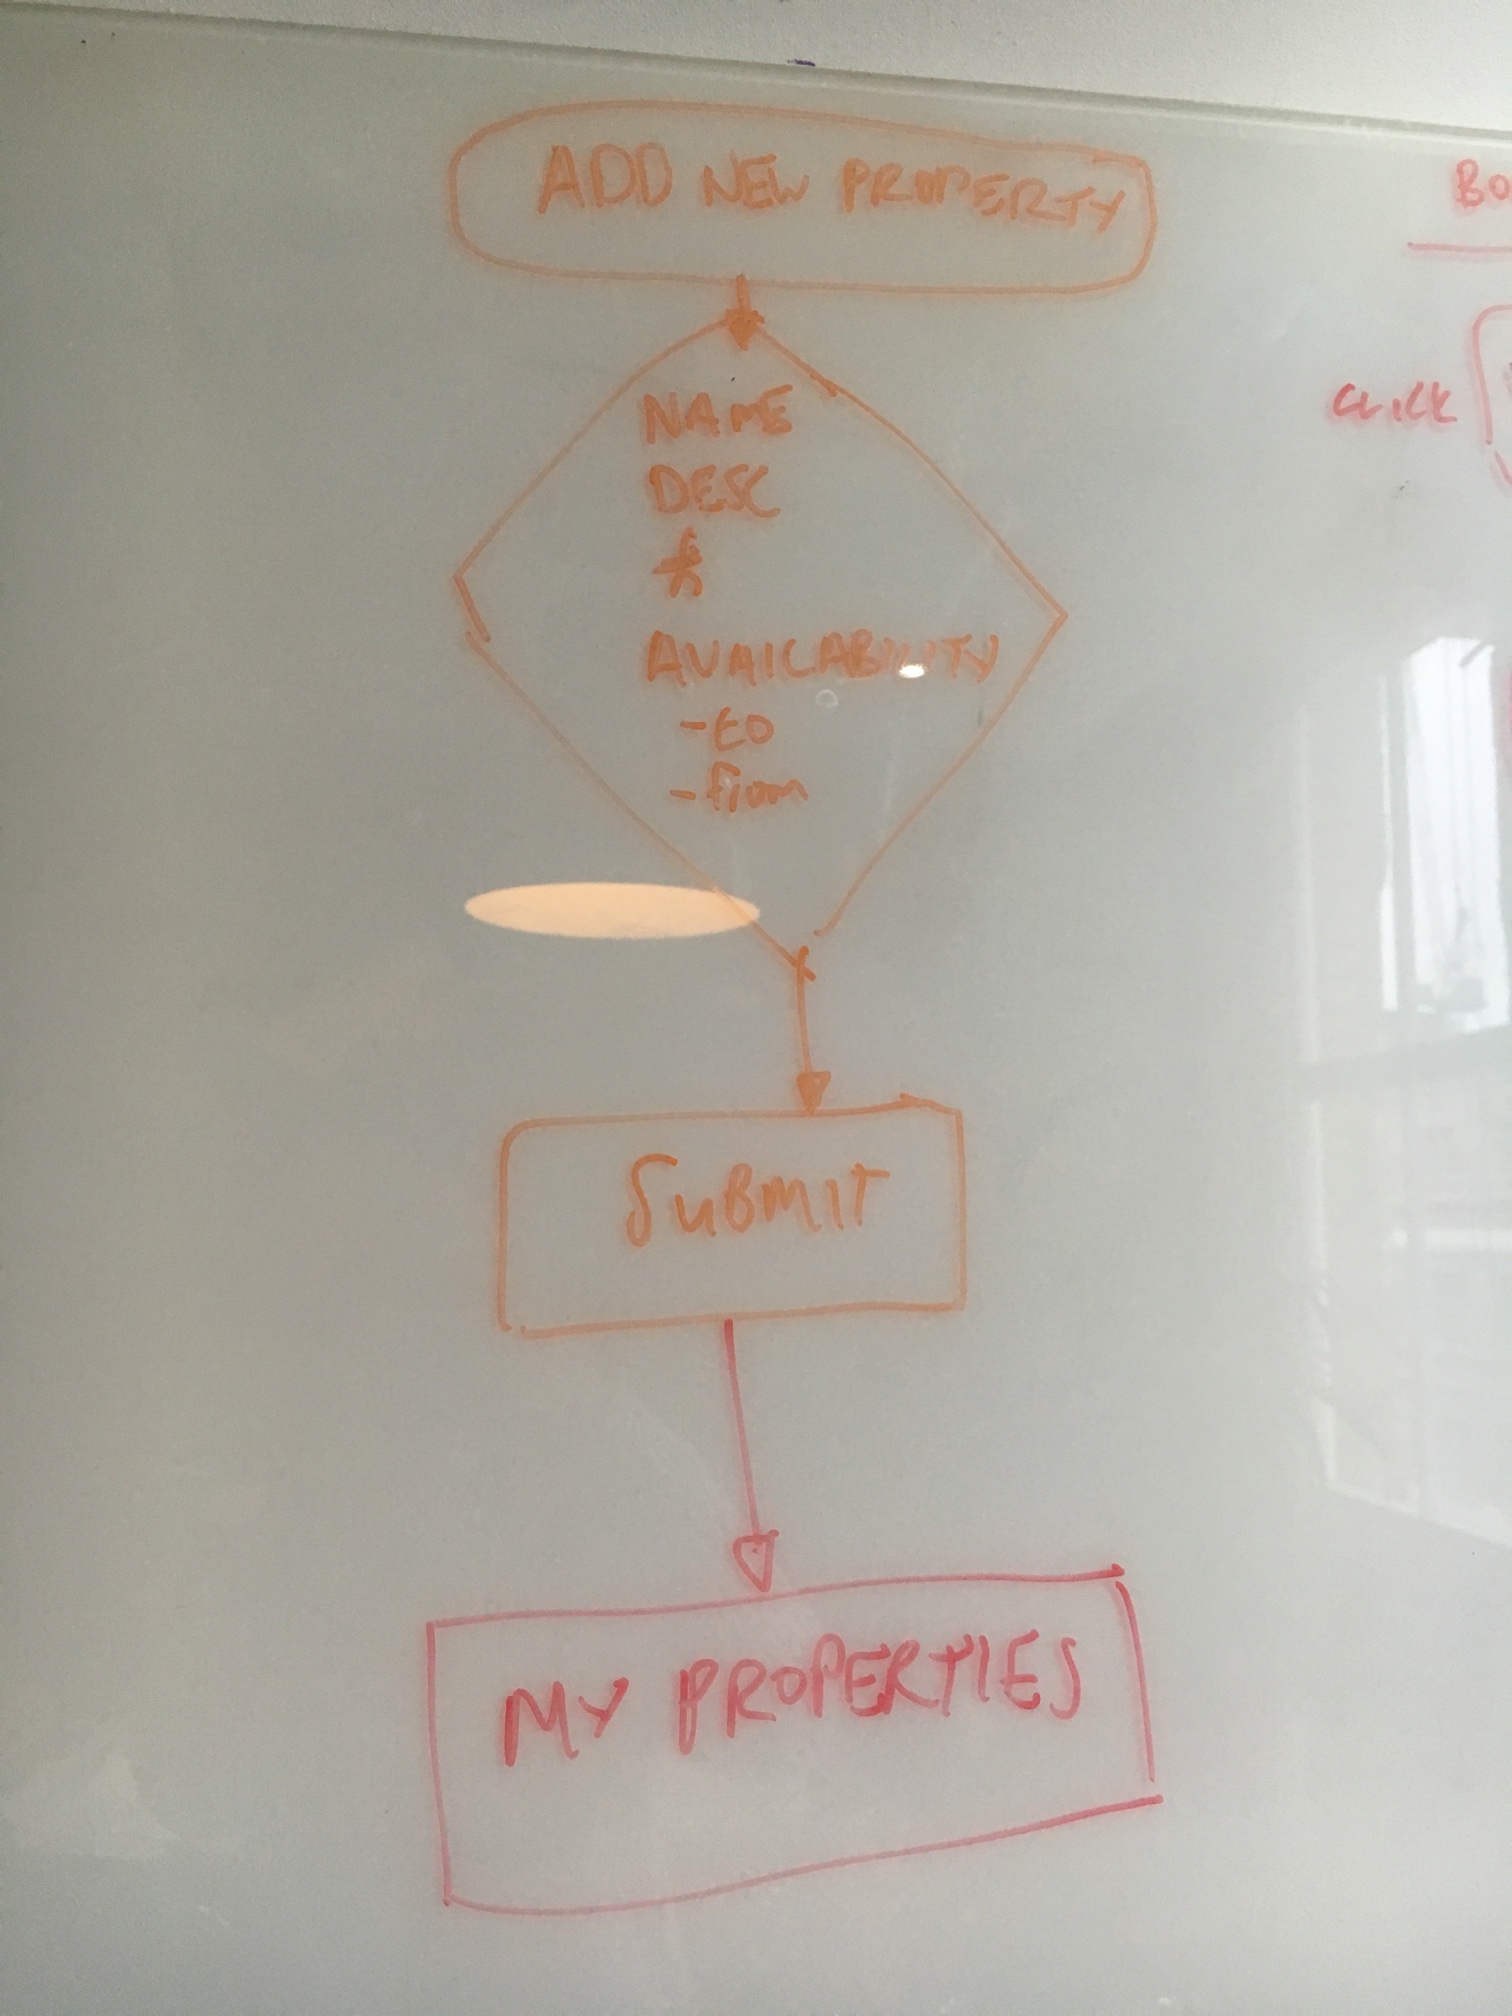 ADD NEW PROPERTY
NAME
DESC
£
AVAILABILITY
-to
-from
SUBMIT
MY PROPERTIES
BO
CLICK